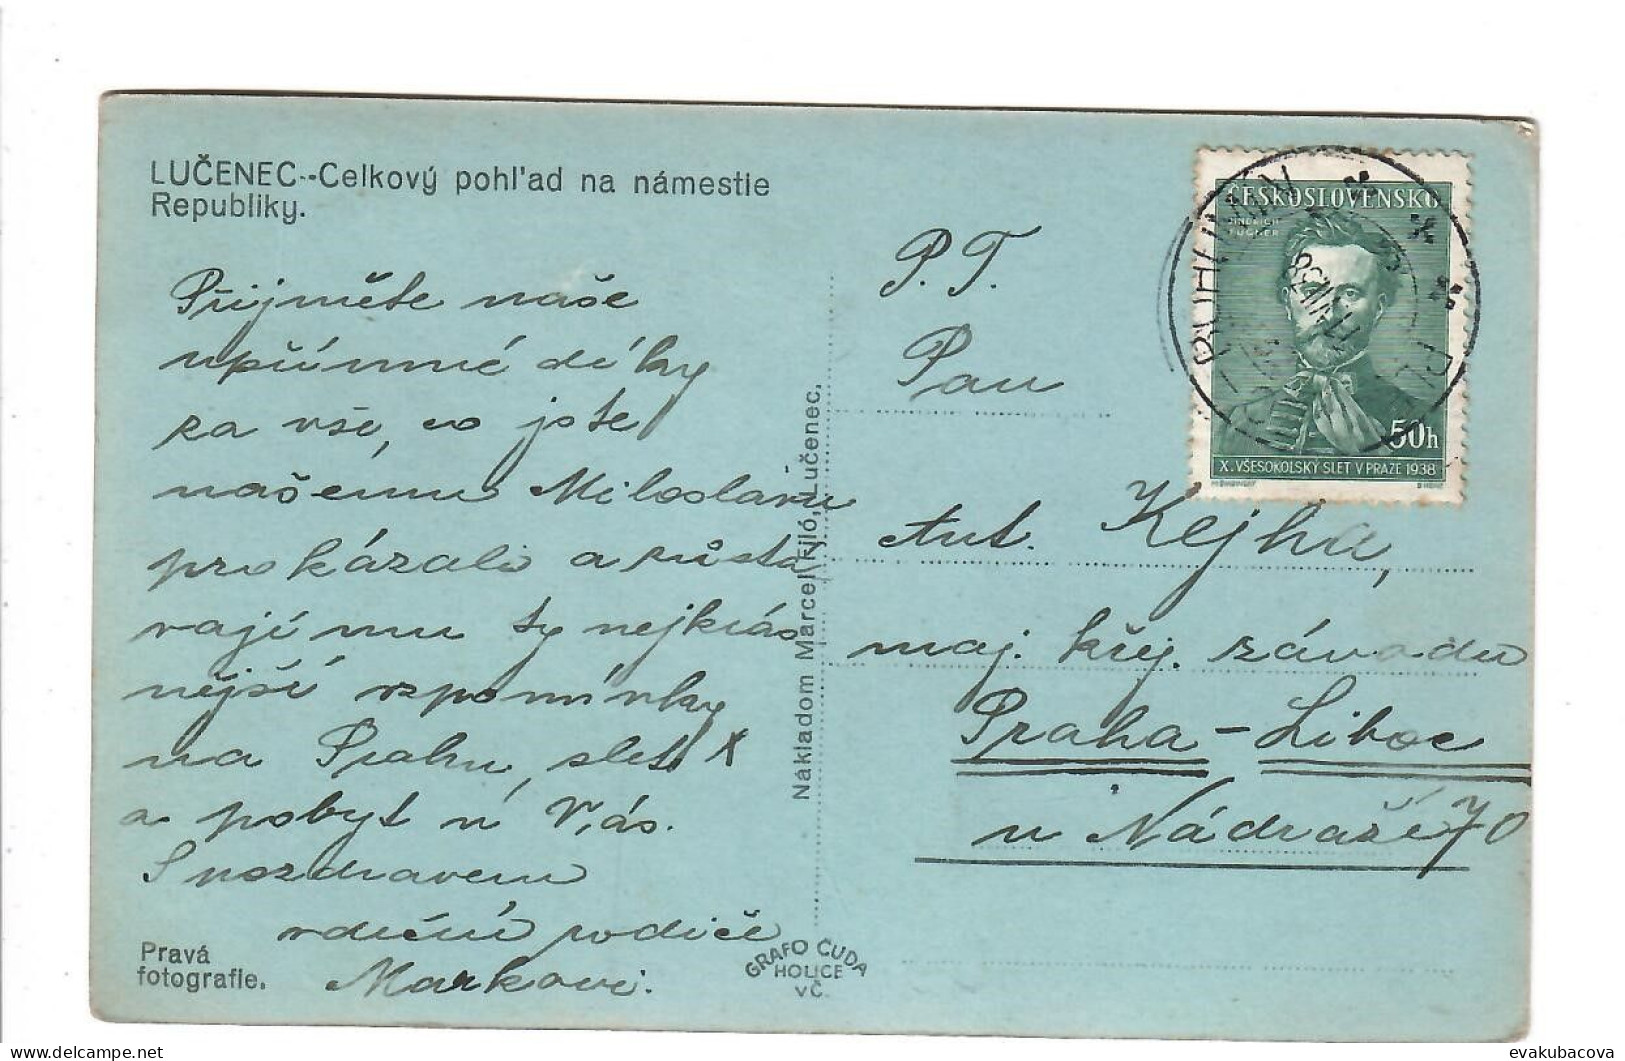 LUČENEC--Celkový pohl'ad na námestie
Republiky.
Přijměte naše
upřímné díky
za vše, co jste
našemu Miloslavu
prokázali a zůsta
vají mu ty nejkrás
nější vzpomínky
na Prahu, slet
a pobyt u Vás.
S pozdravem
vděční rodiče
Markovi.
Pravá
fotografie.
Nákladom Marcel Filó, Lučenec.
GRAFO ČUDA
HOLICE
VČ.
ČESKOSLOVENSKO
JINDŘICH
FÜGNER
50h
X. VŠESOKOLSKÝ SLET V PRAZE 1938
P. T.
Pan
Ant. Kejha,
maj. krej. závodu
Praha-Liboc
u Nádraží 70
evakubacova